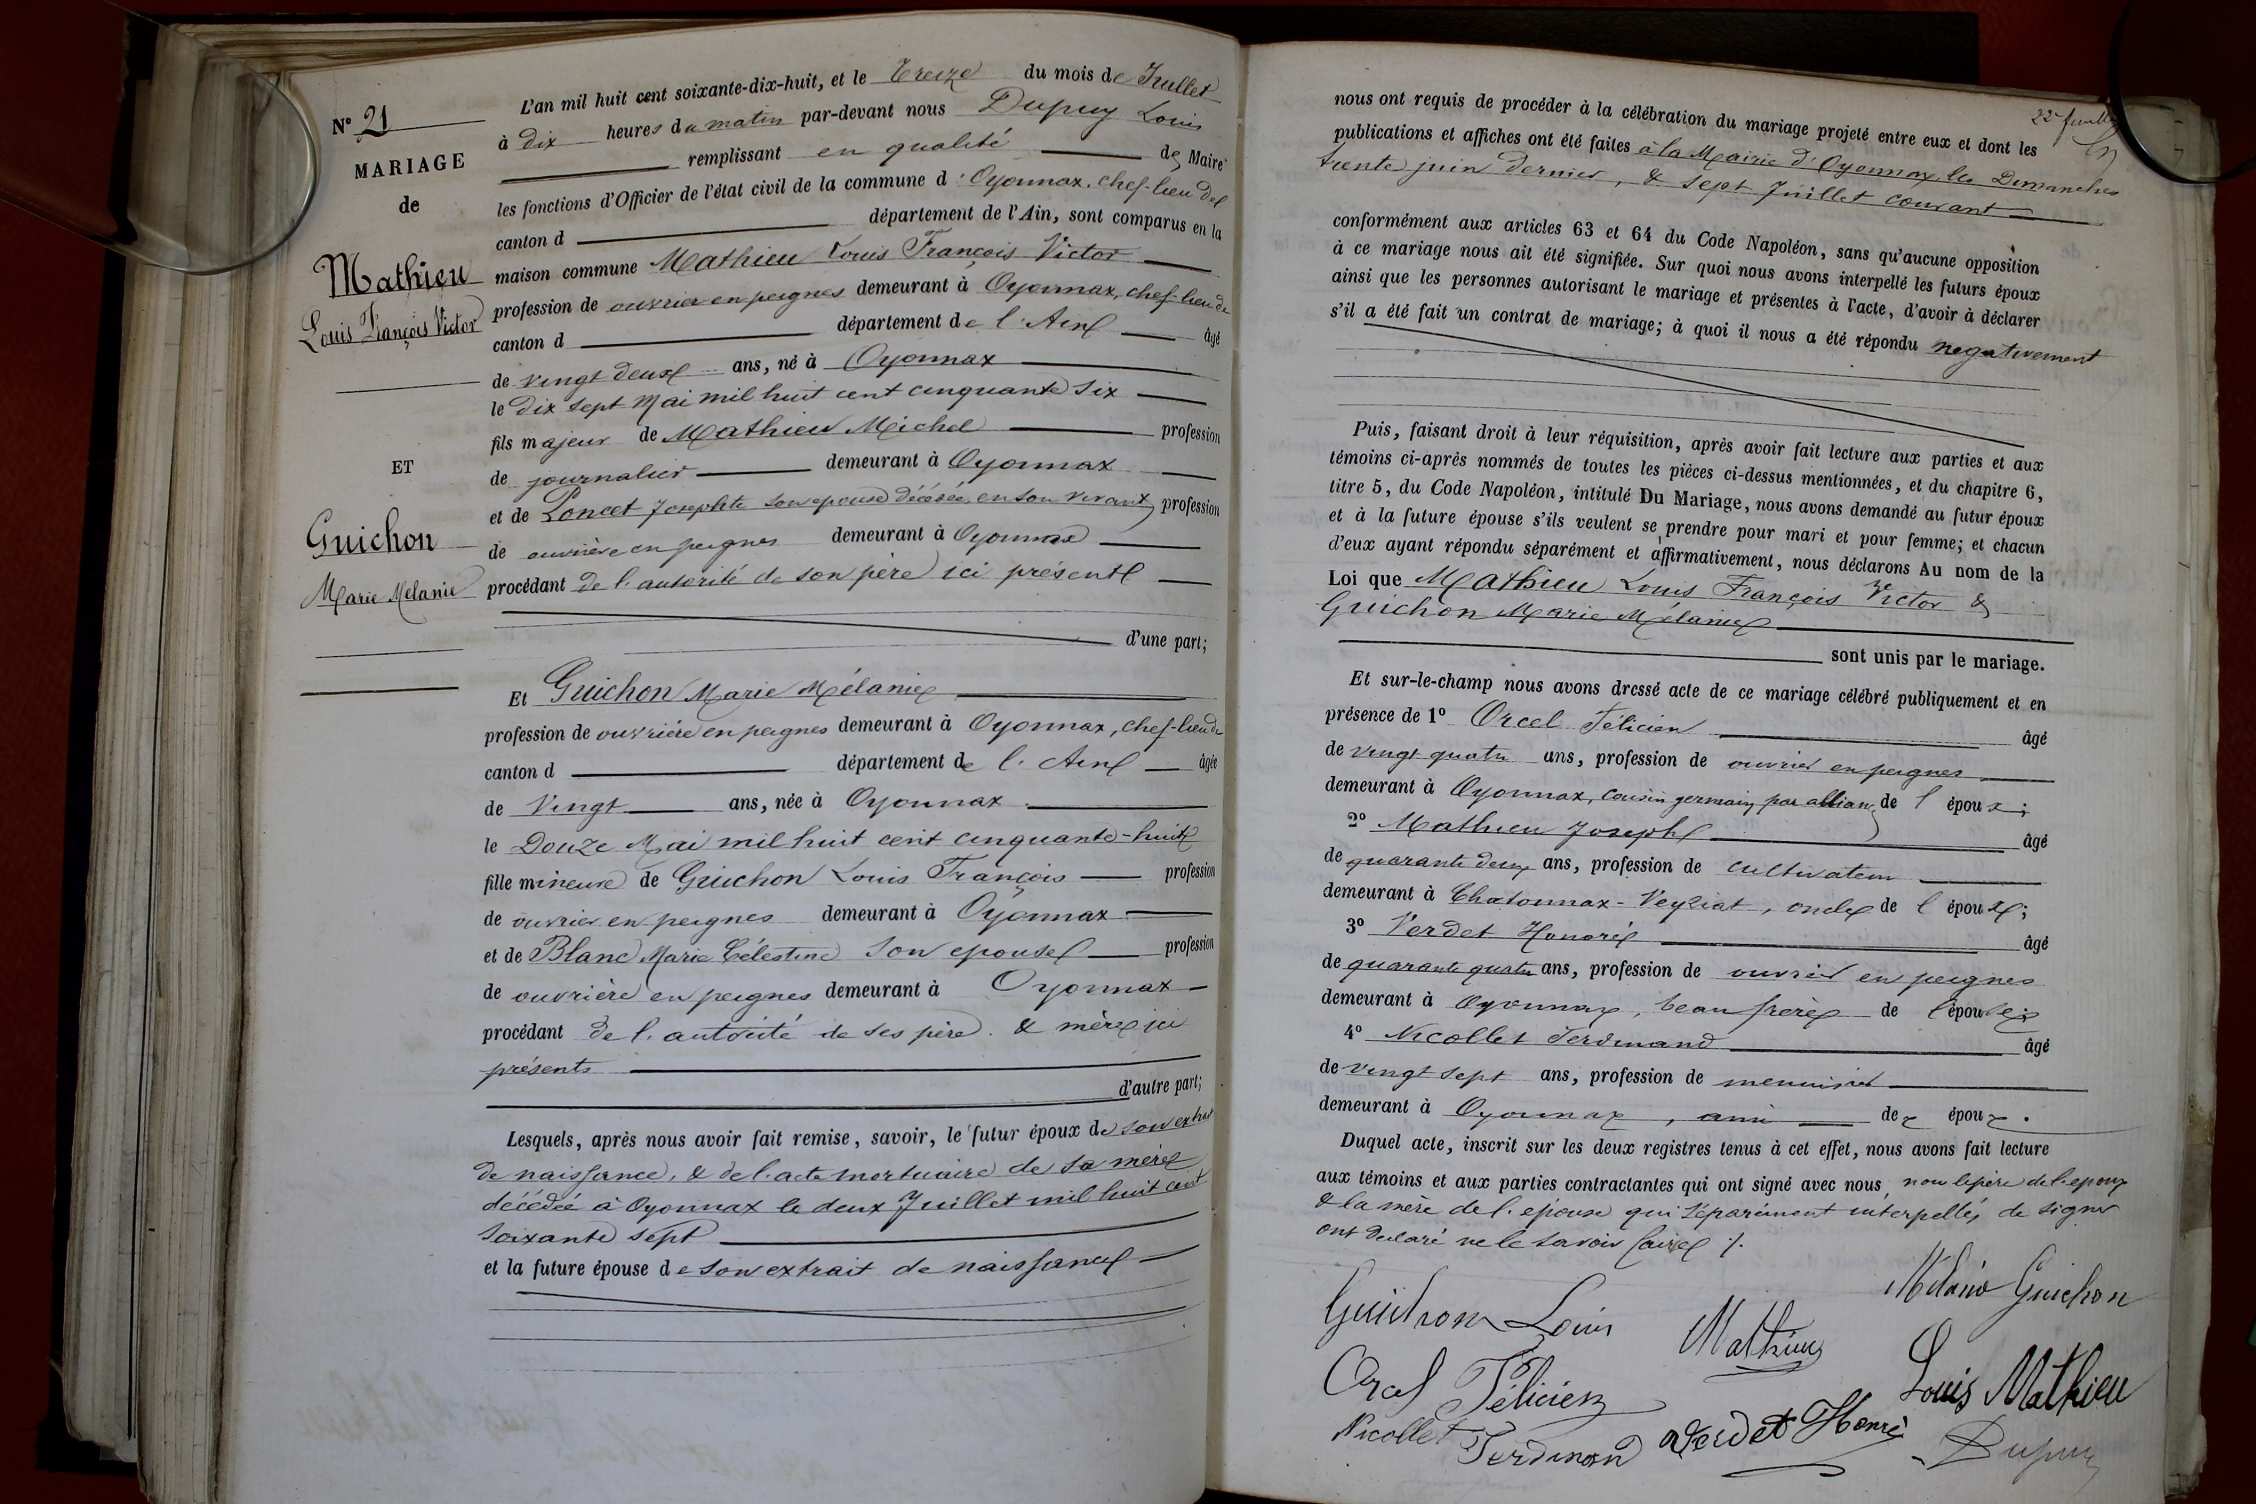 N° 21
MARIAGE
de
Mathieu
Louis François Victor
ET
Guichon
Marie Mélanie
L'an mil huit cent soixante-dix-huit, et le Treize du mois de Juillet
à dix heures du matin par-devant nous Dupuy Louis
remplissant en qualité de Maire
les fonctions d'Officier de l'état civil de la commune d'Oyonnax, chef-lieu de
canton d département de l'Ain, sont comparus en la
maison commune Mathieu Louis François Victor
profession de ouvrier en peignes demeurant à Oyonnax, chef-lieu de
canton d département de l'Ain âgé
de vingt deux ans, né à Oyonnax
le dix sept Mai mil huit cent cinquante six
fils majeur de Mathieu Michel profession
de journalier demeurant à Oyonnax
et de Poncet Josephte son epouse décédée, en son vivant profession
de ouvrière en peignes demeurant à Oyonnax
procédant de l'autorité de son père ici présent
d'une part;
Et Guichon Marie Mélanie
profession de ouvrière en peignes demeurant à Oyonnax, chef-lieu de
canton d département de l'Ain âgée
de Vingt ans, née à Oyonnax
le Douze Mai mil huit cent cinquante-huit
fille mineure de Guichon Louis François profession
de ouvrier en peignes demeurant à Oyonnax
et de Blanc Marie Célestine son epouse profession
de ouvrière en peignes demeurant à Oyonnax
procédant de l'autorité de ses père & mère ici
présents
d'autre part;
Lesquels, après nous avoir fait remise, savoir, le futur époux de son extrait
de naissance, & de l'acte mortuaire de sa mère
décédée à Oyonnax le deux Juillet mil huit cent
soixante sept
et la future épouse de son extrait de naissance
22 juillet
nous ont requis de procéder à la célébration du mariage projeté entre eux et dont les
publications et affiches ont été faites à la Mairie d'Oyonnax les Dimanches
trente juin dernier, & sept Juillet courant
conformément aux articles 63 et 64 du Code Napoléon, sans qu'aucune opposition
à ce mariage nous ait été signifiée. Sur quoi nous avons interpellé les futurs époux
ainsi que les personnes autorisant le mariage et présentes à l'acte, d'avoir à déclarer
s'il a été fait un contrat de mariage; à quoi il nous a été répondu negativement
Puis, faisant droit à leur réquisition, après avoir fait lecture aux parties et aux
témoins ci-après nommés de toutes les pièces ci-dessus mentionnées, et du chapitre 6,
titre 5, du Code Napoléon, intitulé Du Mariage, nous avons demandé au futur époux
et à la future épouse s'ils veulent se prendre pour mari et pour femme; et chacun
d'eux ayant répondu séparément et affirmativement, nous déclarons Au nom de la
Loi que Mathieu Louis François Victor &
Guichon Marie Mélanie
sont unis par le mariage.
Et sur-le-champ nous avons dressé acte de ce mariage célébré publiquement et en
présence de 1° Orcel Félicien âgé
de vingt quatre ans, profession de ouvrier en peignes
demeurant à Oyonnax, cousin germain par alliance de l époux;
2° Mathieu Joseph âgé
de quarante deux ans, profession de cultivateur
demeurant à Chatonnax-Veyziat, oncle de l époux;
3° Verdet Honoré âgé
de quarante quatre ans, profession de ouvrier en peignes
demeurant à Oyonnax, beau frère de l'épouse;
4° Nicollet Ferdinand âgé
de vingt sept ans, profession de menuisier
demeurant à Oyonnax, ami de épou.
Duquel acte, inscrit sur les deux registres tenus à cet effet, nous avons fait lecture
aux témoins et aux parties contractantes qui ont signé avec nous, non le père de l'epoux
& la mère de l'épouse qui séparément interpellés de signer
ont déclaré ne le savoir faire ./.
Mélanie Guichon
Guichon Louis
Mathieu
Louis Mathieu
Orcel Félicien
Nicollet Ferdinand
Verdet Honoré
Dupuy